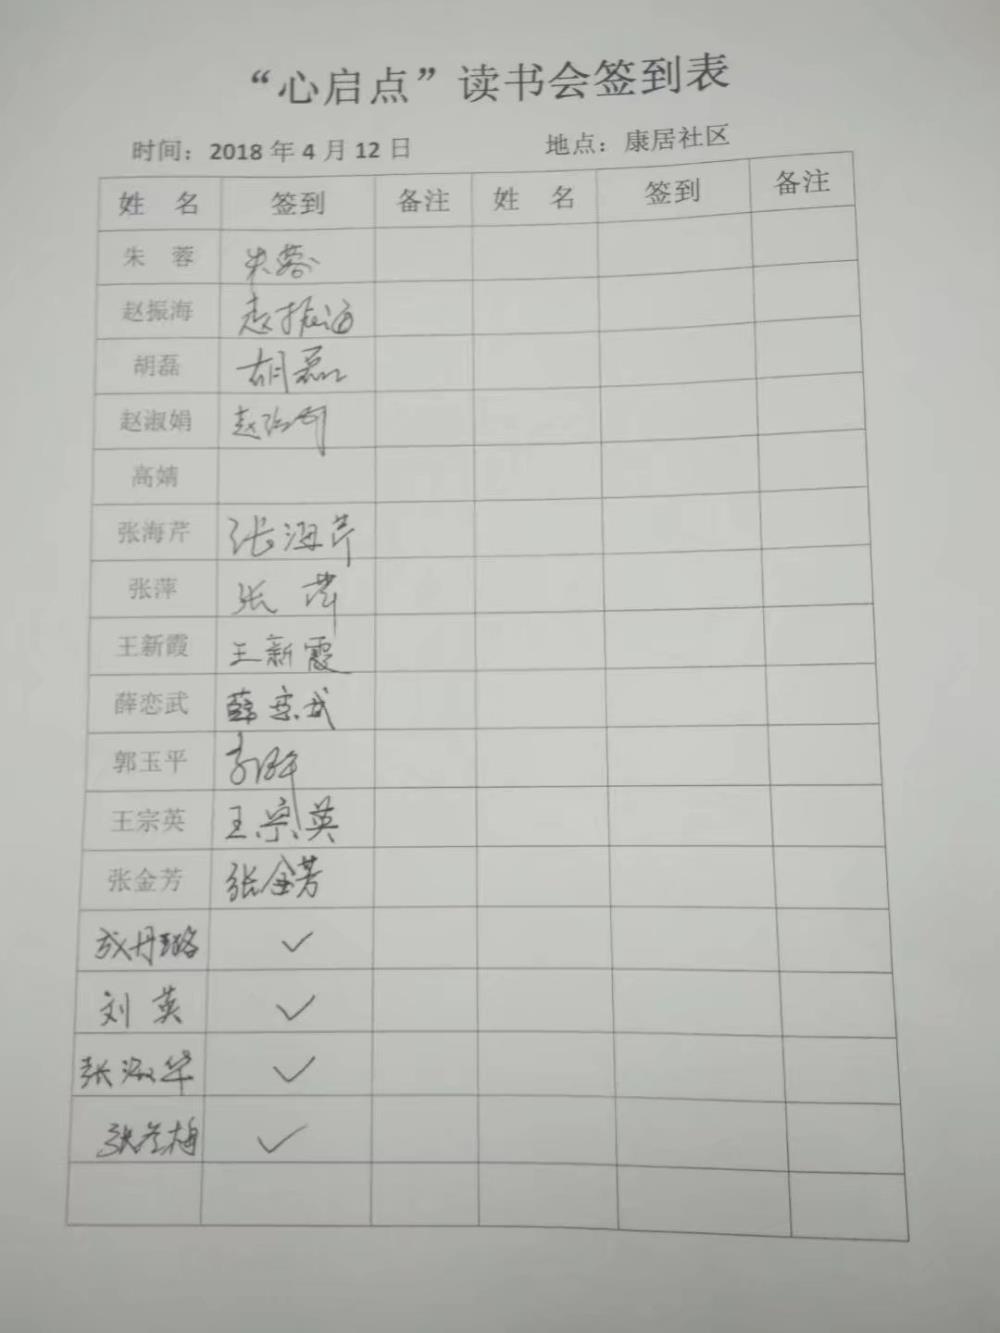 “心启点”读书会签到表
时间：2018年4月12日 地点：康居社区
姓 名 签到 备注 姓 名 签到 备注
朱 蓉 朱蓉
赵振海 赵振海
胡磊 胡磊
赵淑娟 赵淑娟
高婧
张海芹 张海芹
张萍 张萍
王新霞 王新霞
薛恋武 薛恋武
郭玉平 郭玉平
王宗英 王宗英
张金芳 张金芳
成丹璐 ✓
刘英 ✓
张淑华 ✓
张兰梅 ✓